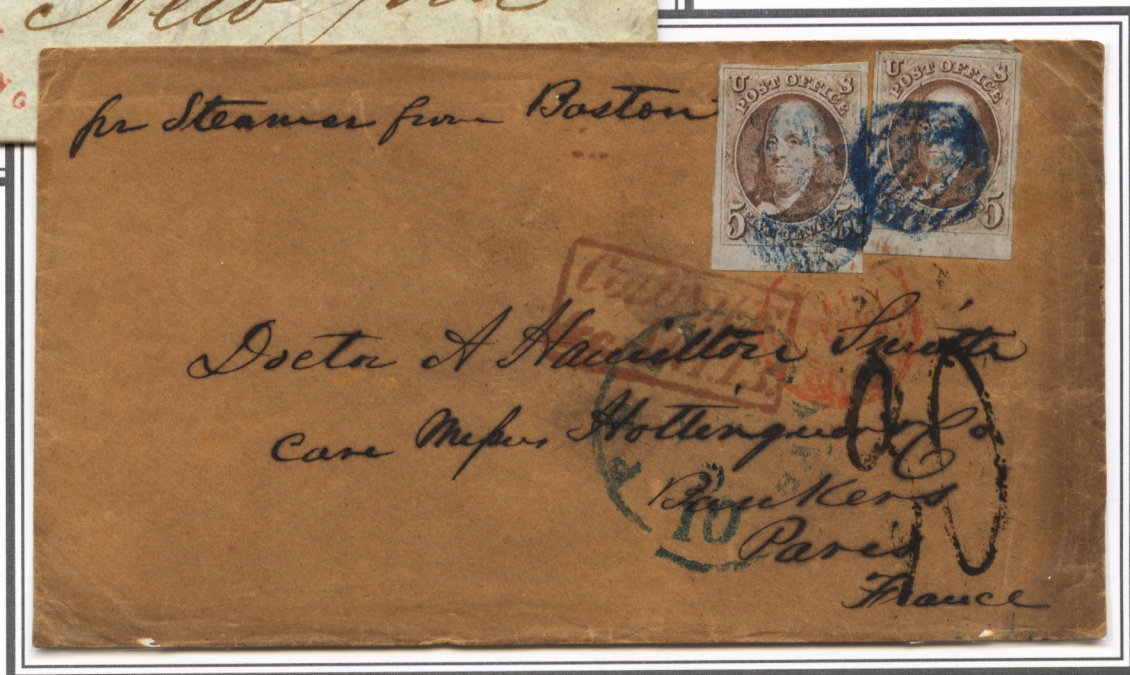 New York
pr Steamer from Boston
U S
POST OFFICE
5 5
U S
POST OFFICE
5
COLONIES
Doctor A Hamilton Smith
care Messrs Hottinguer & Co
Bankers
10
Paris
France